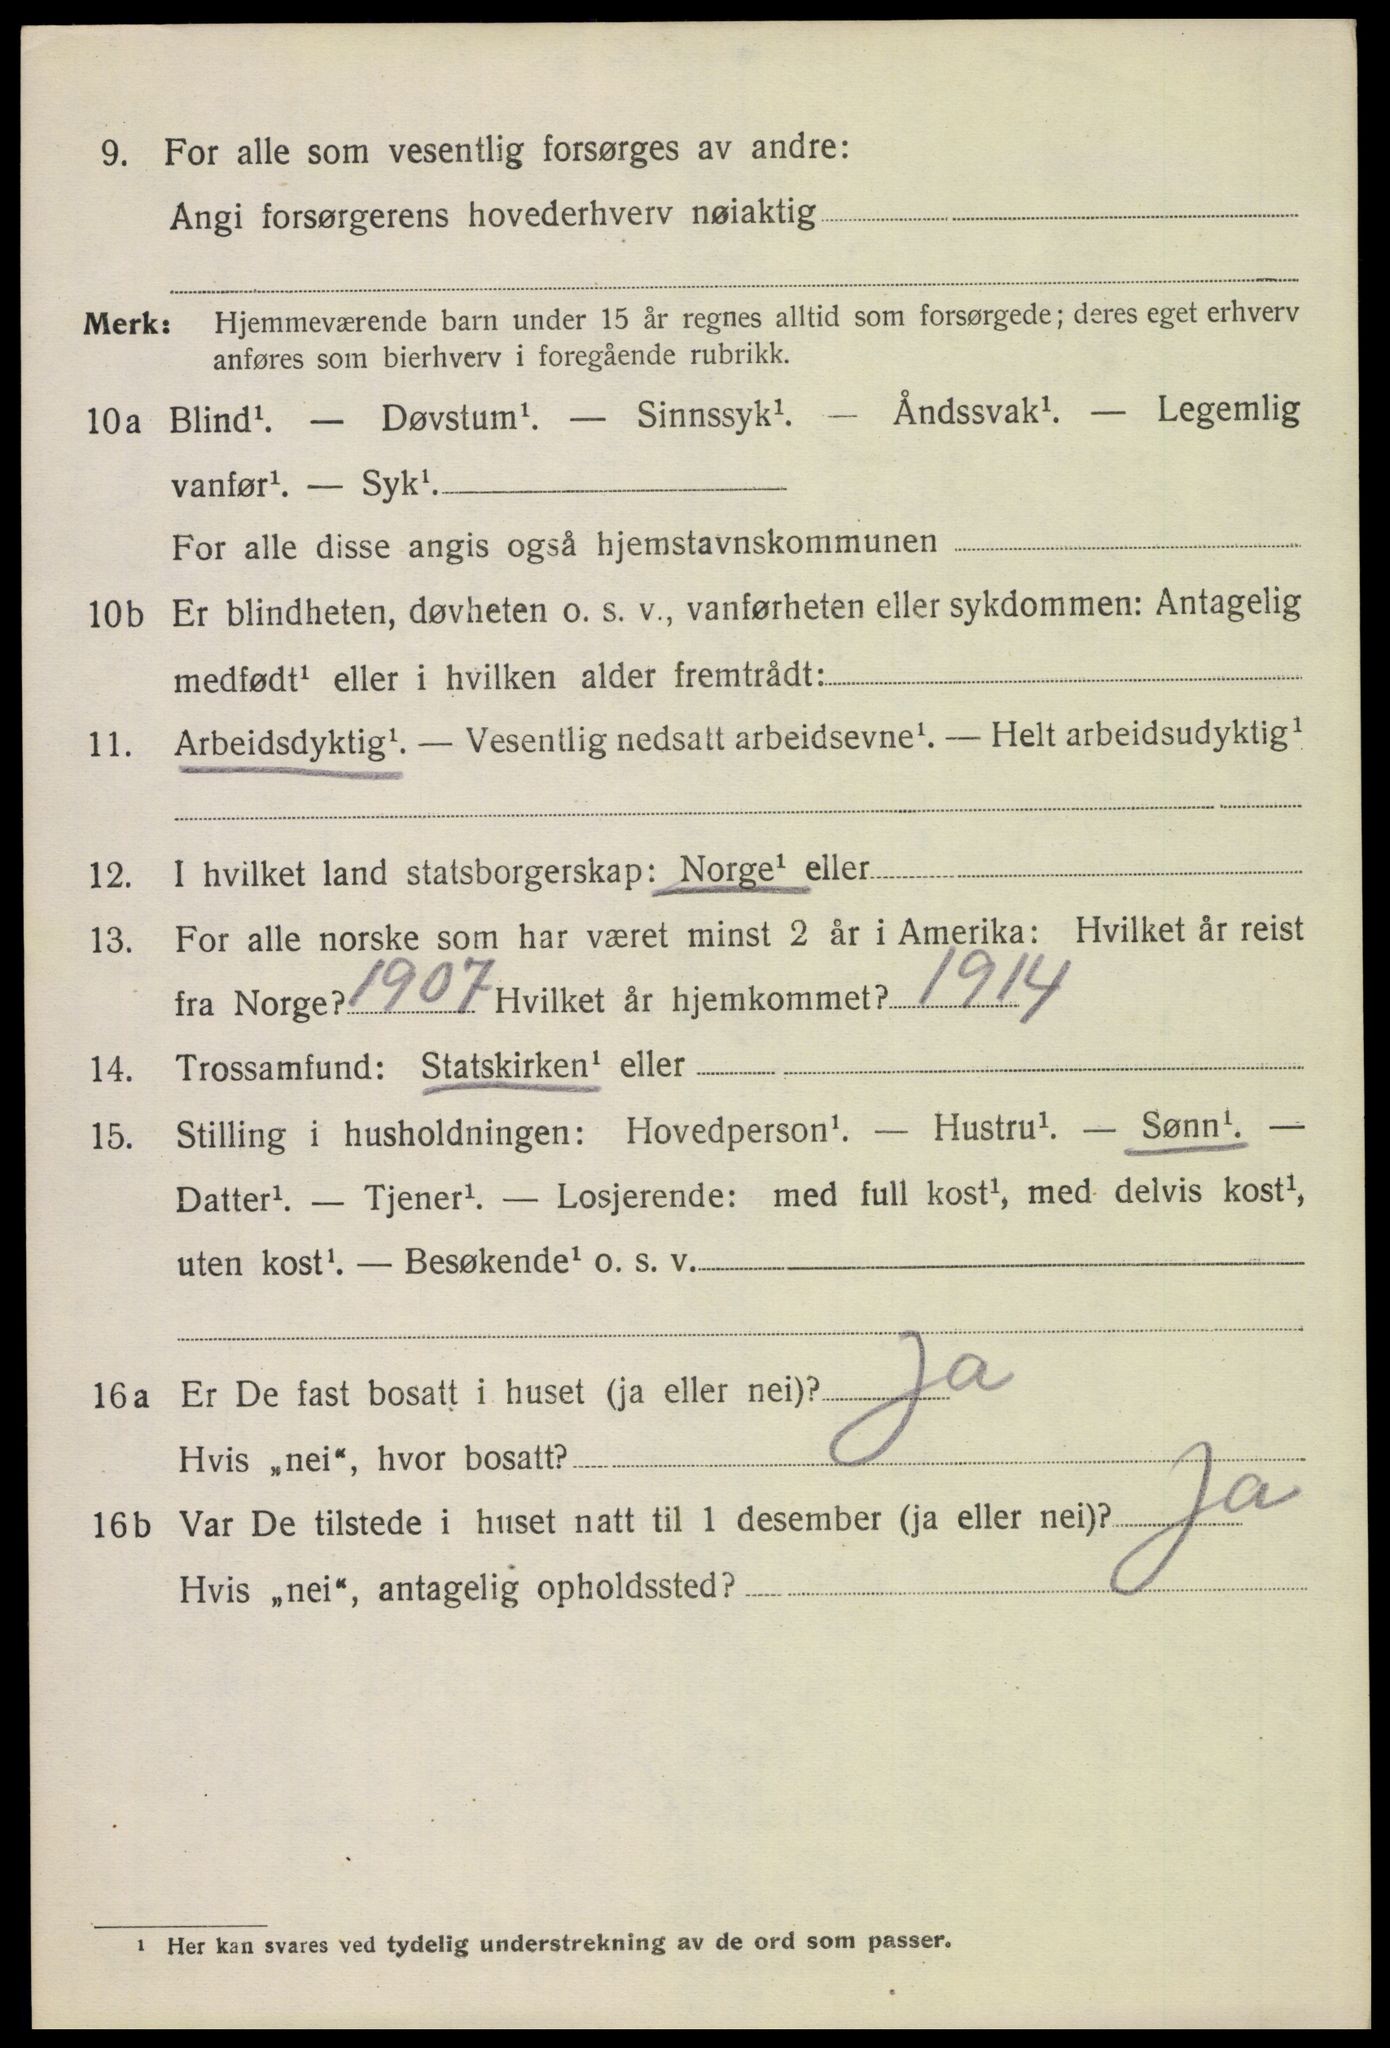 9. For alle som vesentlig forsørges av andre:
Angi forsørgerens hovederhverv nøiaktig
Merk: Hjemmeværende barn under 15 år regnes alltid som forsørgede; deres eget erhverv
anføres som bierhverv i foregående rubrikk.
10a Blind¹. — Døvstum¹. — Sinnssyk¹. — Åndssvak¹. — Legemlig
vanfør¹. — Syk¹.
For alle disse angis også hjemstavnskommunen
10b Er blindheten, døvheten o. s. v., vanførheten eller sykdommen: Antagelig
medfødt¹ eller i hvilken alder fremtrådt:
11. Arbeidsdyktig¹. — Vesentlig nedsatt arbeidsevne¹. — Helt arbeidsudyktig¹
12. I hvilket land statsborgerskap: Norge¹ eller
13. For alle norske som har været minst 2 år i Amerika: Hvilket år reist
fra Norge? 1907 Hvilket år hjemkommet? 1914
14. Trossamfund: Statskirken¹ eller
15. Stilling i husholdningen: Hovedperson¹. — Hustru¹. — Sønn¹. —
Datter¹. — Tjener¹. — Losjerende: med full kost¹, med delvis kost¹,
uten kost¹. — Besøkende¹ o. s. v.
16a Er De fast bosatt i huset (ja eller nei)? Ja
Hvis „nei“, hvor bosatt?
16b Var De tilstede i huset natt til 1 desember (ja eller nei)? Ja
Hvis „nei“, antagelig opholdssted?
¹ Her kan svares ved tydelig understrekning av de ord som passer.